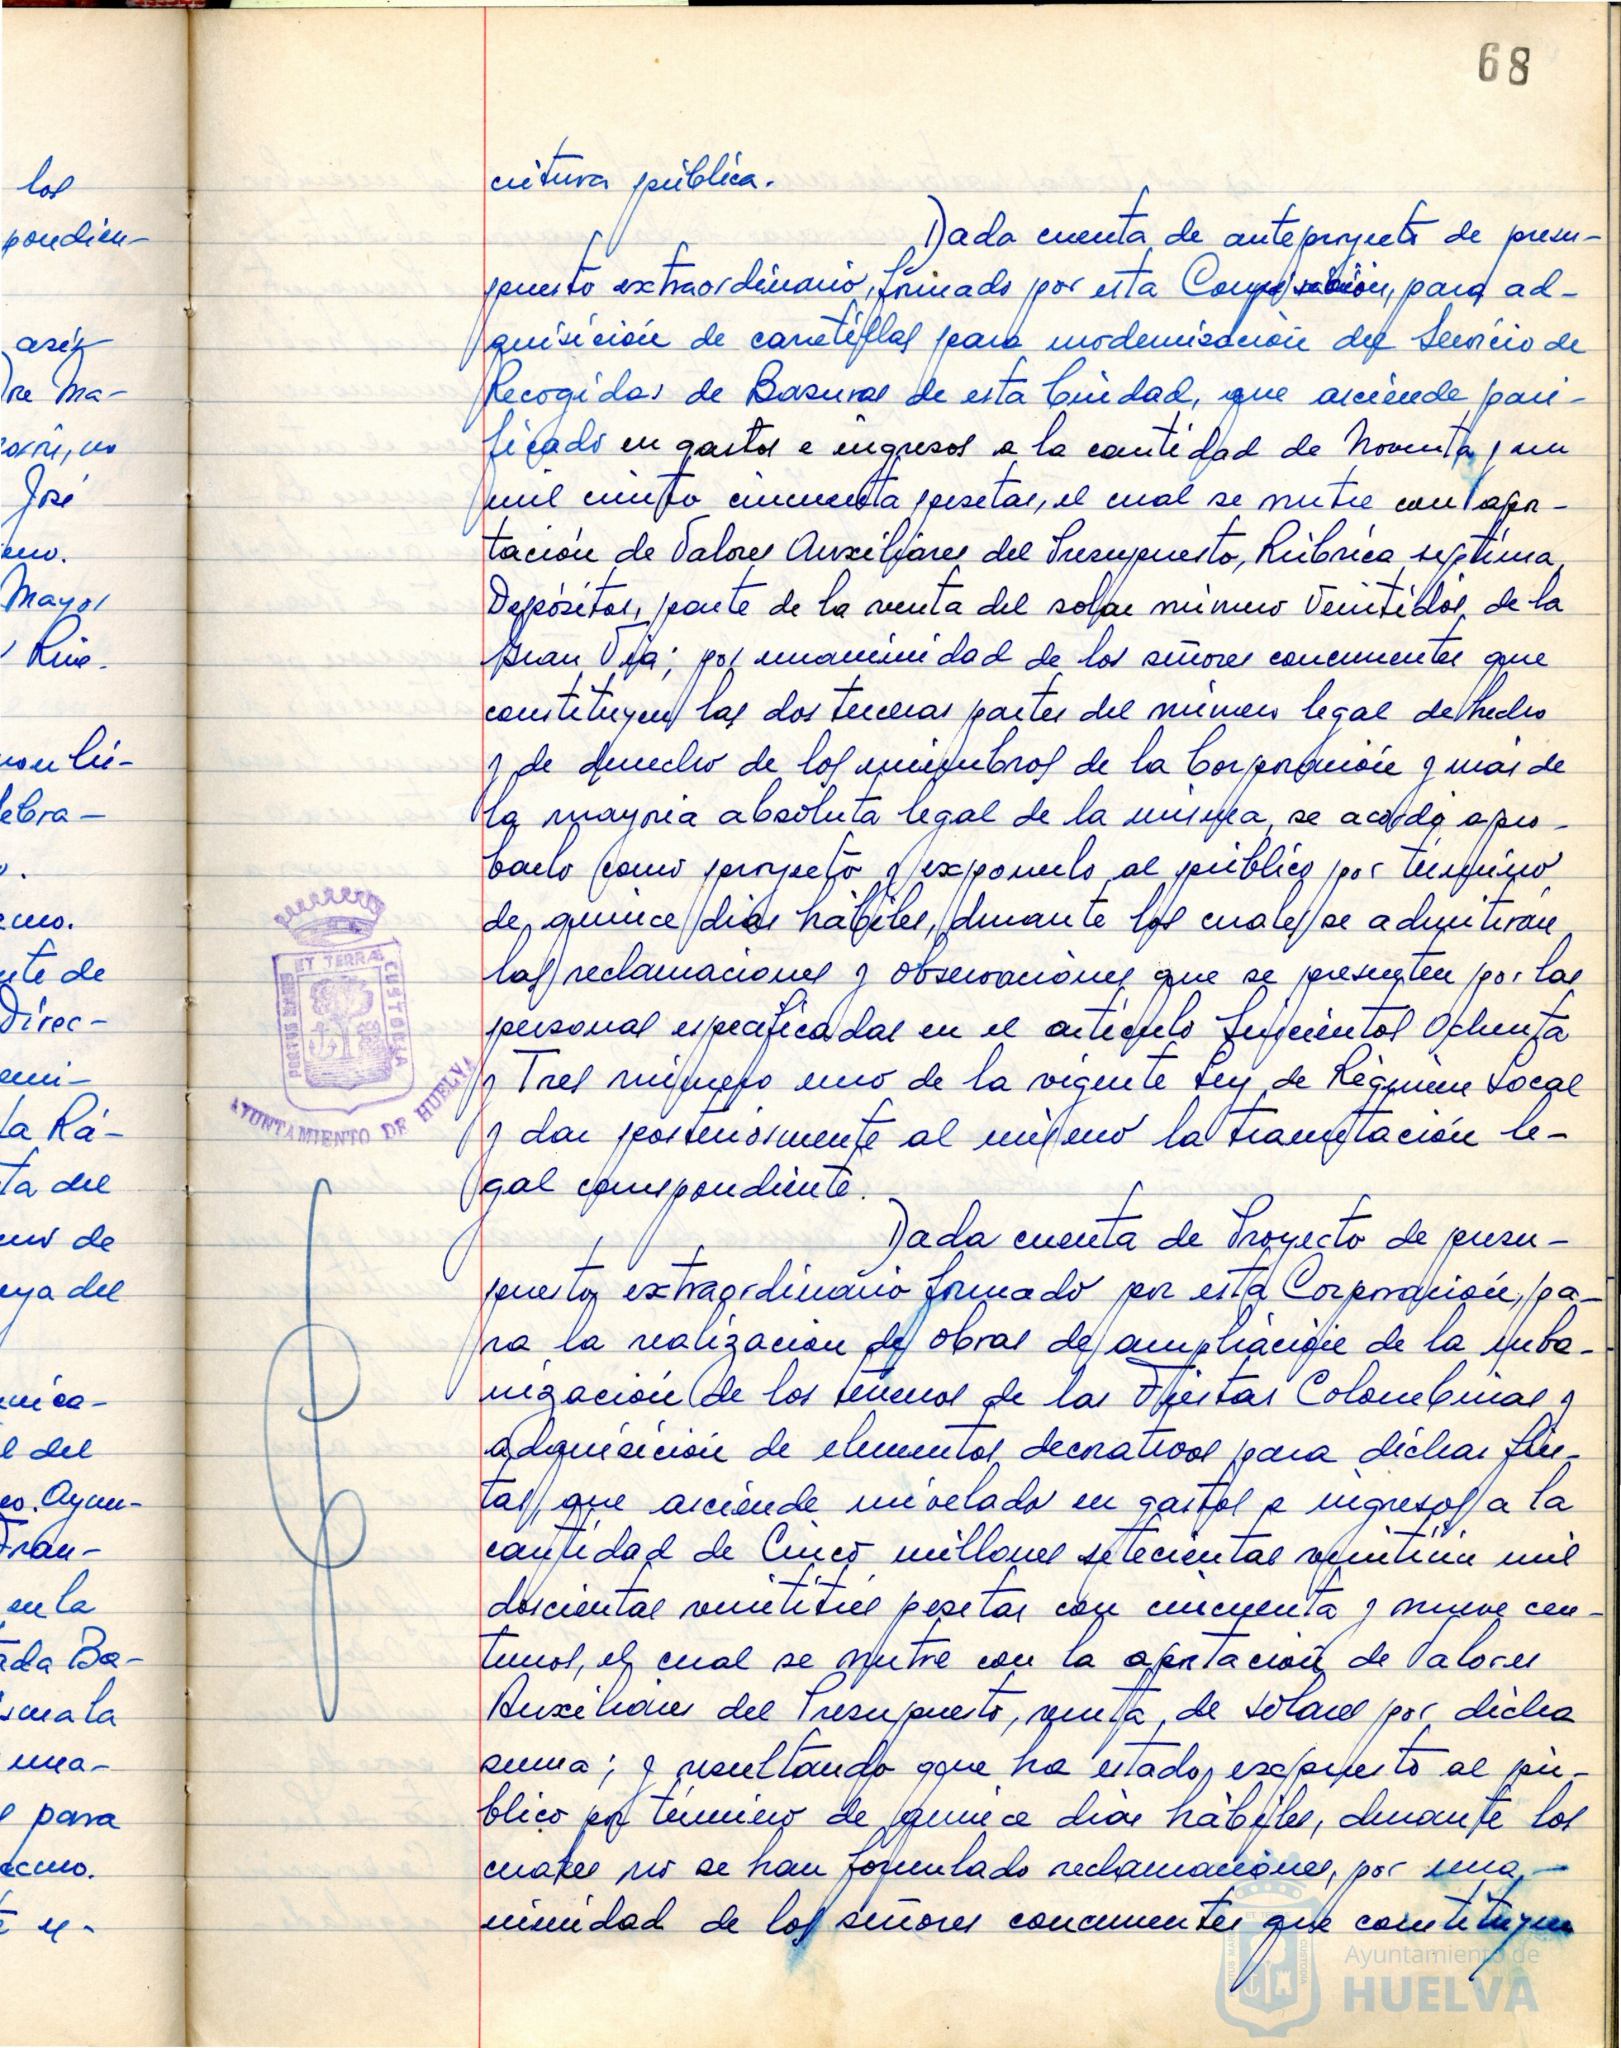 68
los
pondien-
asiz
re Ma-
José
Mayor
Rive.
ebra-
ecmo.
nte de
Direc-
emi-
la Rá-
ta del
de
eya del
l del
Ayun-
Fran-
en la
ada Ba-
para
ecmo.
critura pública.
Dada cuenta de anteproyecto de presu-
puesto extraordinario, formado por esta Corporación, para ad-
quisición de carretillas para modernización del Servicio de
Recogidas de Basuras de esta Ciudad, que asciende pari-
ficado en gastos e ingresos a la cantidad de Noventa y un
mil ciento cincuenta pesetas, el cual se nutre con apor-
tación de Valores Auxiliares del Presupuesto, Rúbrica septima,
Depósitos, parte de la venta del solar número Veintidós de la
Gran Vía; por unanimidad de los señores concurrentes que
constituyen las dos terceras partes del número legal de hecho
y de derecho de los miembros de la Corporación y más de
la mayoria absoluta legal de la misma, se acordó apro-
barlo como proyecto y exponerlo al público por término
de quince dias hábiles, durante los cuales se admitirán
las reclamaciones y observaciones que se presenten por las
personas especificadas en el artículo Seiscientos Ochenta
y Tres número uno de la vigente Ley de Régimen Local
y dar posteriormente al mismo la tramitación le-
gal correspondiente.
Dada cuenta de Proyecto de presu-
puesto extraordinario formado por esta Corporación, pa-
ra la realización de obras de ampliación de la urba-
nización de los terrenos de las Fiestas Colombinas y
adquisición de elementos decorativos para dichas fies-
tas, que asciende nivelado en gastos e ingresos a la
cantidad de Cinco millones setecientas veintiún mil
doscientas veintitrés pesetas con cincuenta y nueve cen-
timos, el cual se nutre con la aportación de Valores
Auxiliares del Presupuesto, venta de solares por dicha
suma; y resultando que ha estado expuesto al pú-
blico por término de quince dias hábiles, durante los
cuales no se han formulado reclamaciones, por una-
nimidad de los señores concurrentes que constituyen
PORTUS MARIS ET TERRAE CUSTODIA
AYUNTAMIENTO DE HUELVA
Ayuntamiento de
HUELVA